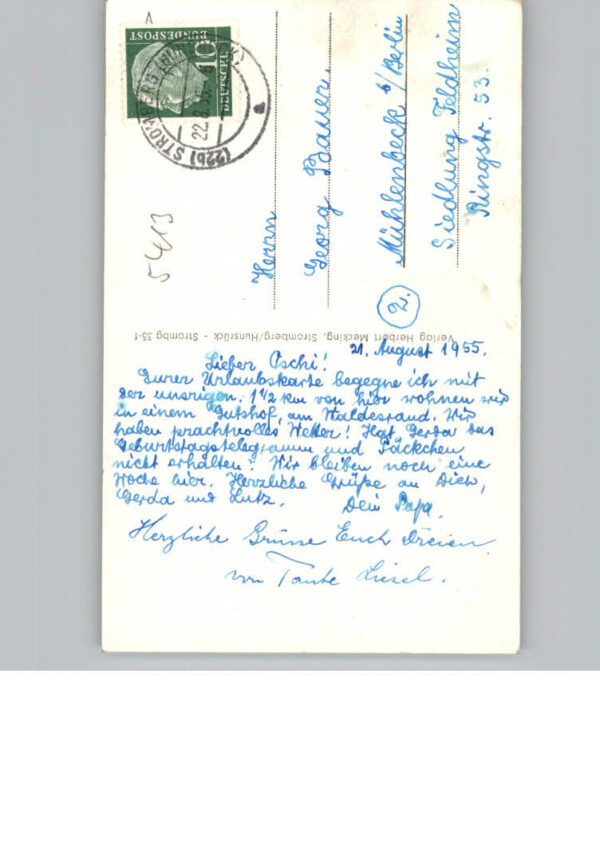 21. August 1955.
Lieber Pschi!
Eurer Urlaubskarte begegne ich mit
der unsrigen. 1 1/2 km von hier wohnen wir
in einem Gutshof, am Waldesrand. Wir
haben prachtvolles Wetter! Hat Gerda das
Geburtstagstelegramm und Päckchen
nicht erhalten? Wir bleiben noch eine
Woche hier. Herzliche Grüße an Dich,
Gerda und Lutz. Dein Papa.
Herzliche Grüsse Euch Dreien
von Tante Liesel.
Herrn
Georg Bauer.
Mühlenbeck b/Berlin
Siedlung Feldheim
Ringstr. 53.
2.
5413
Verlag Herbert Mecking, Stromberg/Hunsrück - Strombg 35-1
DEUTSCHE
BUNDESPOST
10
(22b) STROMBERG (HUNSRÜCK)
22.8.55